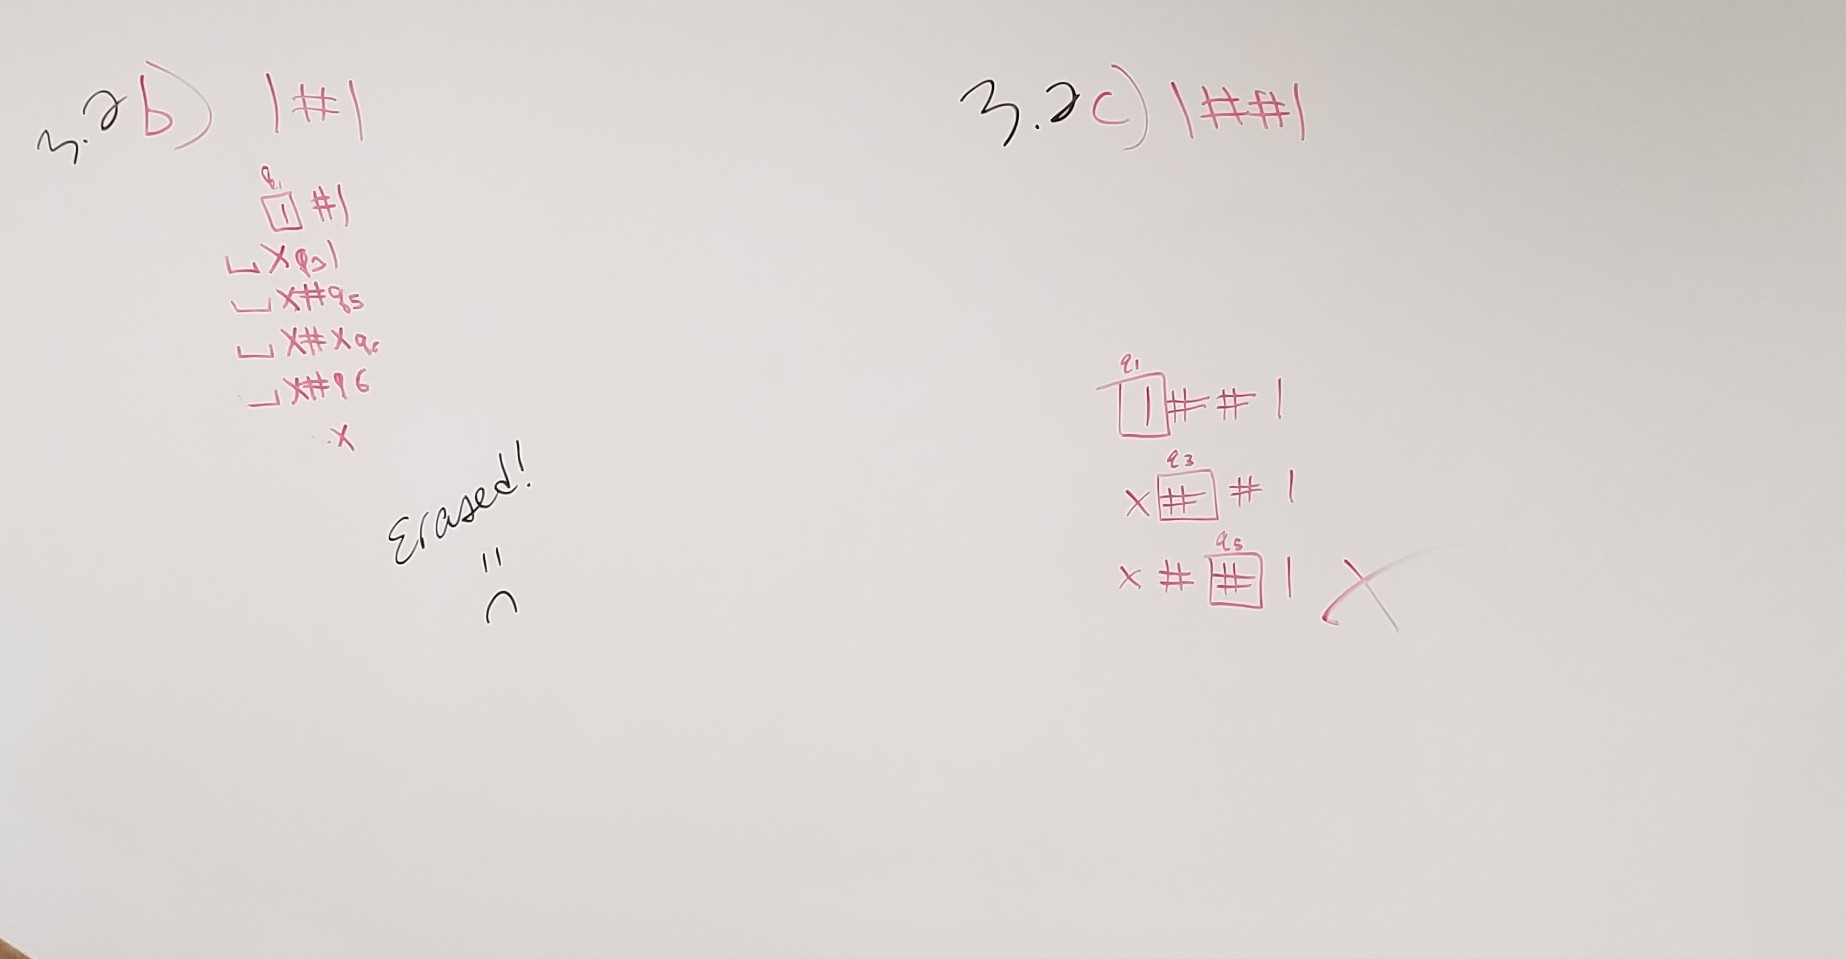 3.2b) 1#1
q1
1#1
␣xq31
␣x#q5
␣x#xq6
␣x#q6
x
Erased!
3.2c) 1##1
q1
1##1
q3
x##1
q5
x##1 X